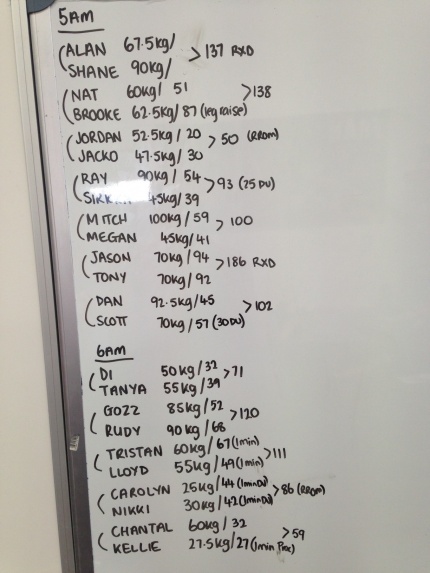 5AM
ALAN 67.5kg/ >137 RXD
SHANE 90kg/
NAT 60kg/ 51 >138
BROOKE 62.5kg/ 87 (leg raise)
JORDAN 52.5kg / 20 >50 (RROM)
JACKO 47.5kg / 30
RAY 90kg / 54 >93 (25 DU)
45kg/39
MITCH 100kg / 59 >100
MEGAN 45kg/41
JASON 70kg / 94 >186 RXD
TONY 70kg / 92
DAN 92.5kg/45 >102
SCOTT 70kg / 57 (30DU)
6AM
DI 50kg / 32 >71
TANYA 55kg / 39
GOZZ 85kg / 52 >120
RUDY 90kg / 68
TRISTAN 60kg / 67 (1min) >111
LLOYD 55kg / 49 (1min)
CAROLYN 25kg / 44 (1minDU) >86 (RROM)
NIKKI 30kg / 42 (1minDU)
CHANTAL 60kg / 32 >59
KELLIE 27.5kg/27 (1min Prac)